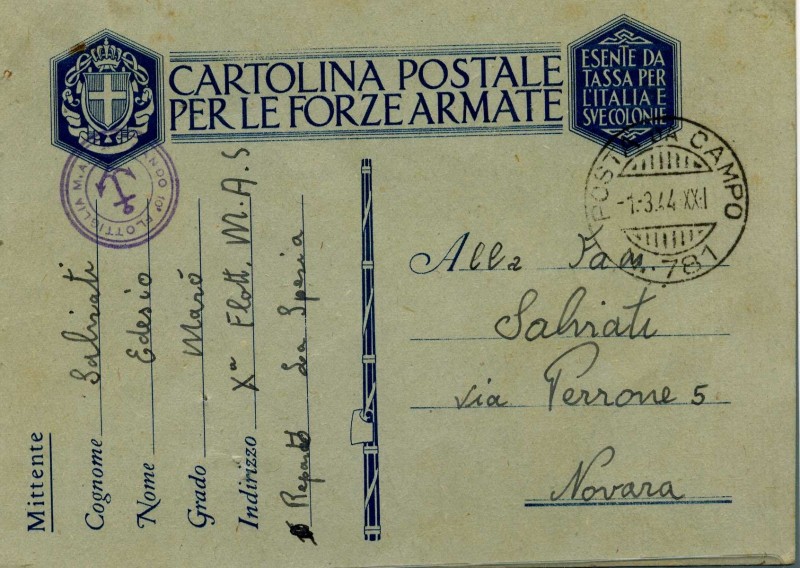 CARTOLINA POSTALE
PER LE FORZE ARMATE
ESENTE DA
TASSA PER
L'ITALIA E
SVE COLONIE
10ª FLOTTIGLIA M.A
POSTA DA CAMPO
-1.3.44 XXI
N. 781
Alla Fam.
Salviati
via Perrone 5
Novara
Mittente
Cognome Salviati
Nome Edesio
Grado Marò
Indirizzo Xª Flott. M.A.S
Reparto La Spezia